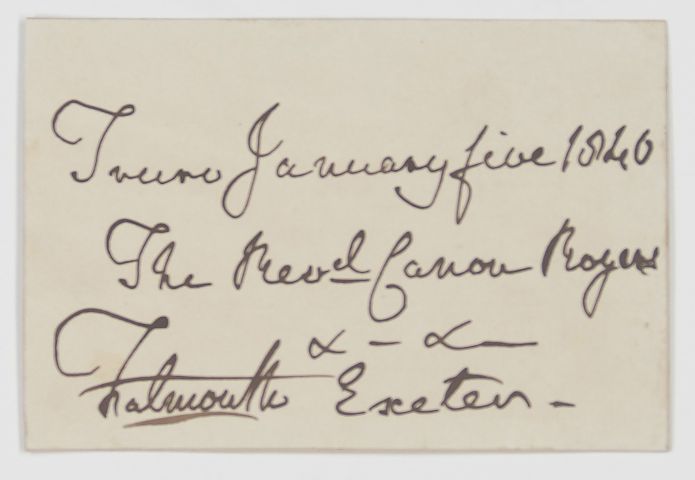 Truro January five 1840
The Revd Canon Rogers
& - &
Falmouth Exeter -